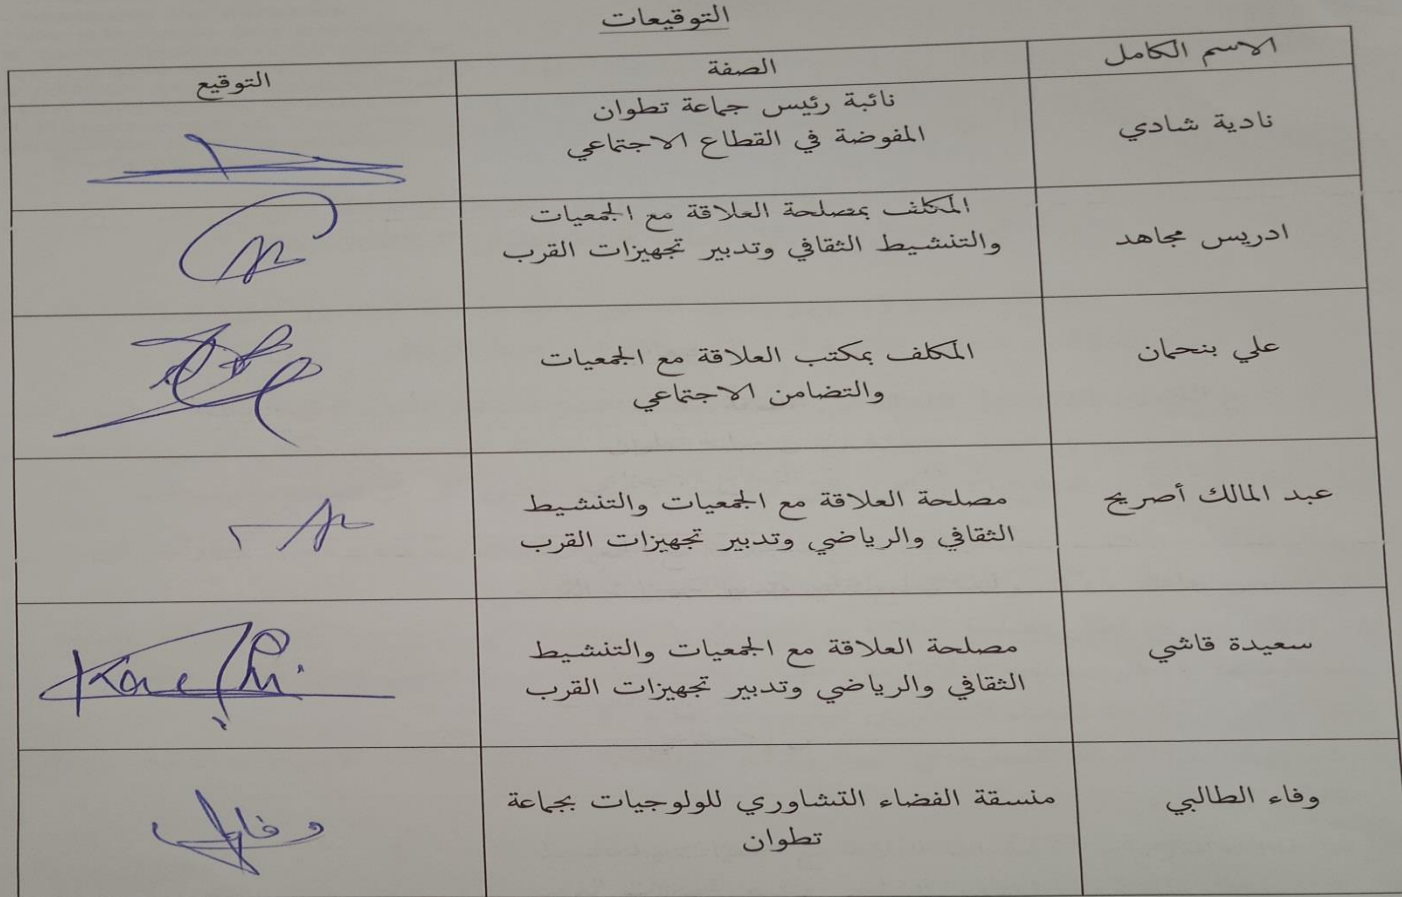 التوقيعات
الاسم الكامل الصفة التوقيع
نادية شادي
نائبة رئيس جماعة تطوان
المفوضة في القطاع الاجتماعي
ادريس مجاهد
المكلف بمصلحة العلاقة مع الجمعيات
والتنشيط الثقافي وتدبير تجهيزات القرب
علي بنحمان
المكلف بمكتب العلاقة مع الجمعيات
والتضامن الاجتماعي
عبد المالك أصريح
مصلحة العلاقة مع الجمعيات والتنشيط
الثقافي والرياضي وتدبير تجهيزات القرب
سعيدة قاشي
مصلحة العلاقة مع الجمعيات والتنشيط
الثقافي والرياضي وتدبير تجهيزات القرب
وفاء الطالبي
منسقة الفضاء التشاوري للولوجيات بجماعة
تطوان
وفاء